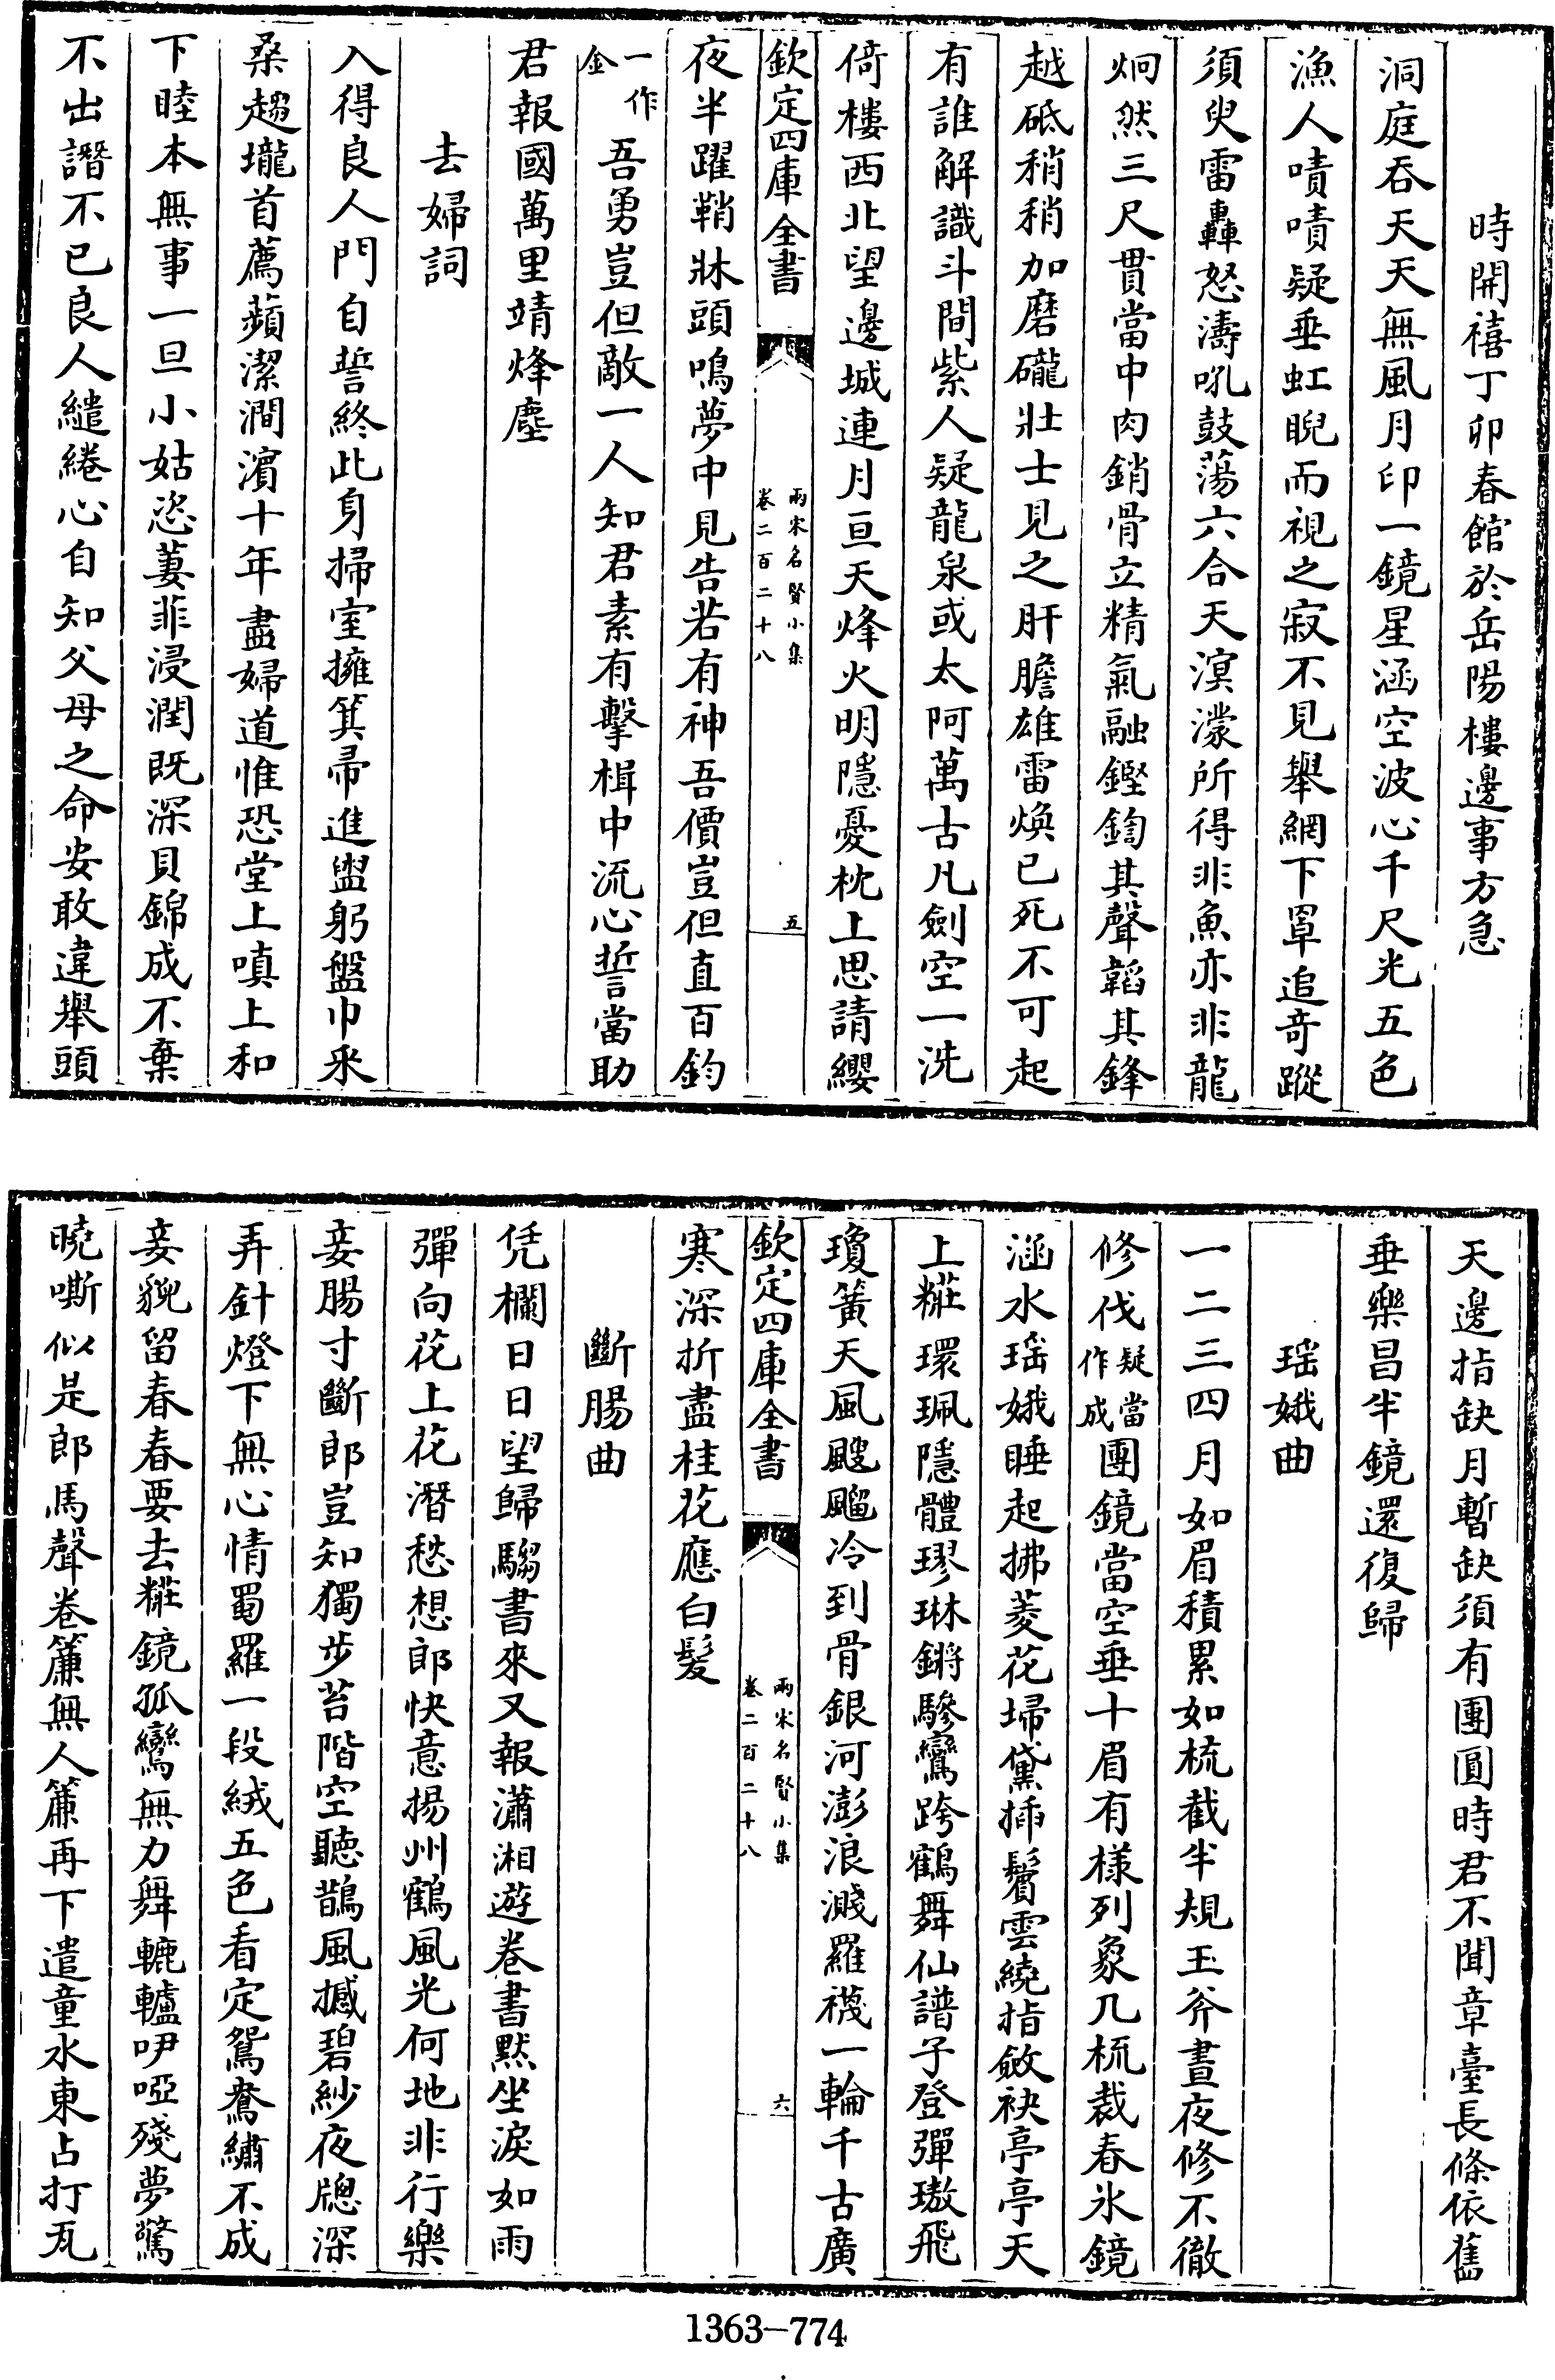 時開禧丁卯春館於岳陽樓邊事方急
洞庭吞天天無風月印一鏡星涵空波心千尺光五色
漁人嘖嘖疑垂虹睨而視之寂不見舉網下罩追奇蹤
須臾雷轟怒濤吼鼓蕩六合天溟濛所得非魚亦非龍
炯然三尺貫當中肉銷骨立精氣融鏗鍧其聲韜其鋒
越砥稍稍加磨礲壯士見之肝膽雄雷煥已死不可起
有誰解識斗間紫人疑龍泉或太阿萬古凡劍空一洗
倚樓西北望邊城連月亘天烽火明隱憂枕上思請纓
欽定四庫全書
兩宋名賢小集
卷二百二十八
五
夜半躍鞘牀頭鳴夢中見告若有神吾價豈但直百鈞
一作金吾勇豈但敵一人知君素有擊楫中流心誓當助
君報國萬里靖烽塵
去婦詞
入得良人門自誓終此身掃室擁箕帚進盥躬盤巾采
桑趨壠首薦蘋潔澗濱十年盡婦道惟恐堂上嗔上和
下睦本無事一旦小姑恣萋菲浸潤既深貝錦成不棄
不出譖不已良人繾綣心自知父母之命安敢違舉頭
天邊指缺月暫缺須有團圓時君不聞章臺長條依舊
垂樂昌半鏡還復歸
瑶娥曲
一二三四月如眉積累如梳截半規玉斧晝夜修不徹
修伐疑當作成團鏡當空垂十眉有樣列象几梳裁春氷鏡
涵水瑶娥睡起拂菱花埽黛插鬢雲繞指斂袂亭亭天
上糚環珮隱體璆琳鏘驂鸞跨鶴舞仙譜子登彈璈飛
瓊簧天風颼飀冷到骨銀河澎浪濺羅襪一輪千古廣
欽定四庫全書
兩宋名賢小集
卷二百二十八
六
寒深折盡桂花應白髮
斷腸曲
凭欄日日望歸騶書來又報瀟湘遊卷書默坐淚如雨
彈向花上花潛愁想郎快意揚州鶴風光何地非行樂
妾腸寸斷郎豈知獨步苔階空聽鵲風撼碧紗夜牕深
弄針燈下無心情蜀羅一段絨五色看定鴛鴦繡不成
妾貌留春春要去糚鏡孤鸞無力舞轆轤咿啞殘夢驚
曉嘶似是郎馬聲卷簾無人簾再下遣童水東占打瓦
1363-774